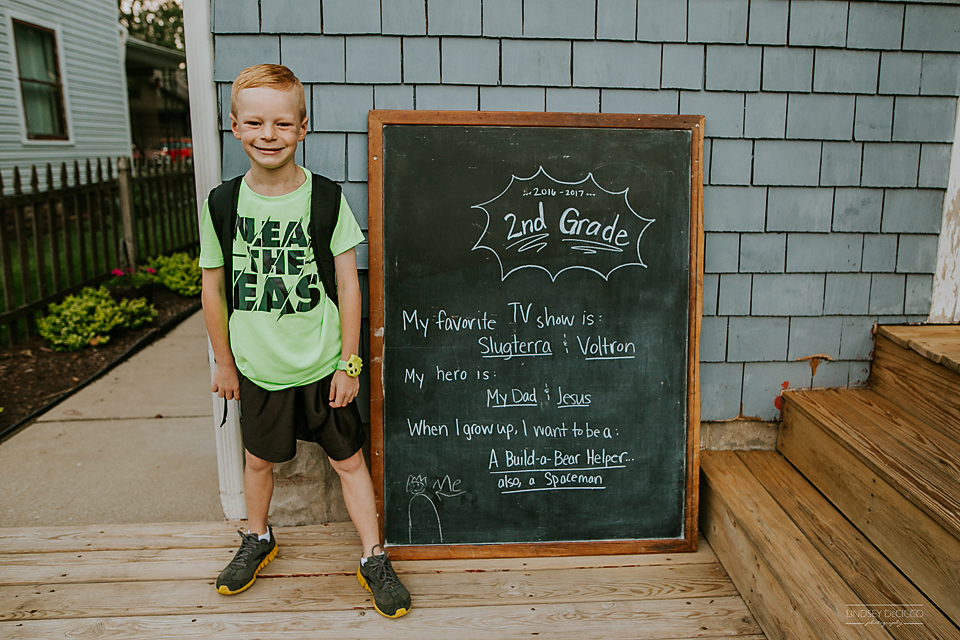 ... 2016-2017 ...
2nd Grade
My favorite TV show is:
Slugterra & Voltron
My hero is:
My Dad & Jesus
When I grow up, I want to be a:
A Build-a-Bear Helper...
also, a Spaceman
Me
THE
LINDSEY DeCICCO
photography